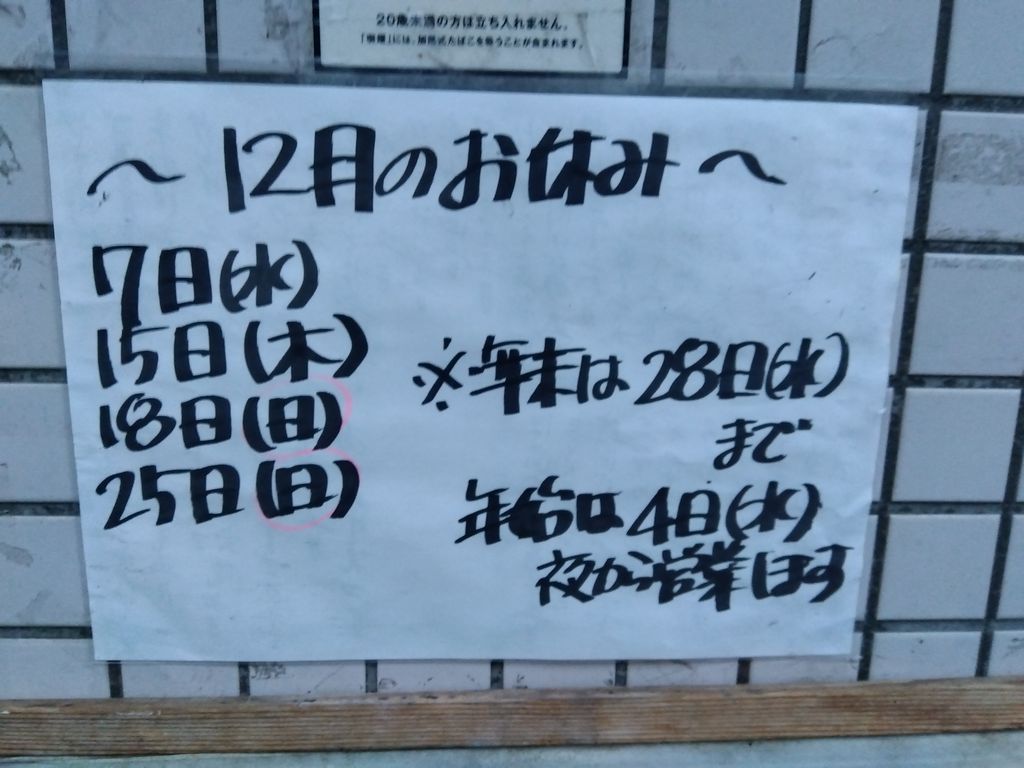 20歳未満の方は立ち入れません。
「喫煙」には、加熱式たばこを吸うことが含まれます。
〜 12月のお休み 〜
7日(水)
15日(木)
18日(日)
25日(日)
※年末は28日(水)
まで
年始は4日(水)
夜から営業します